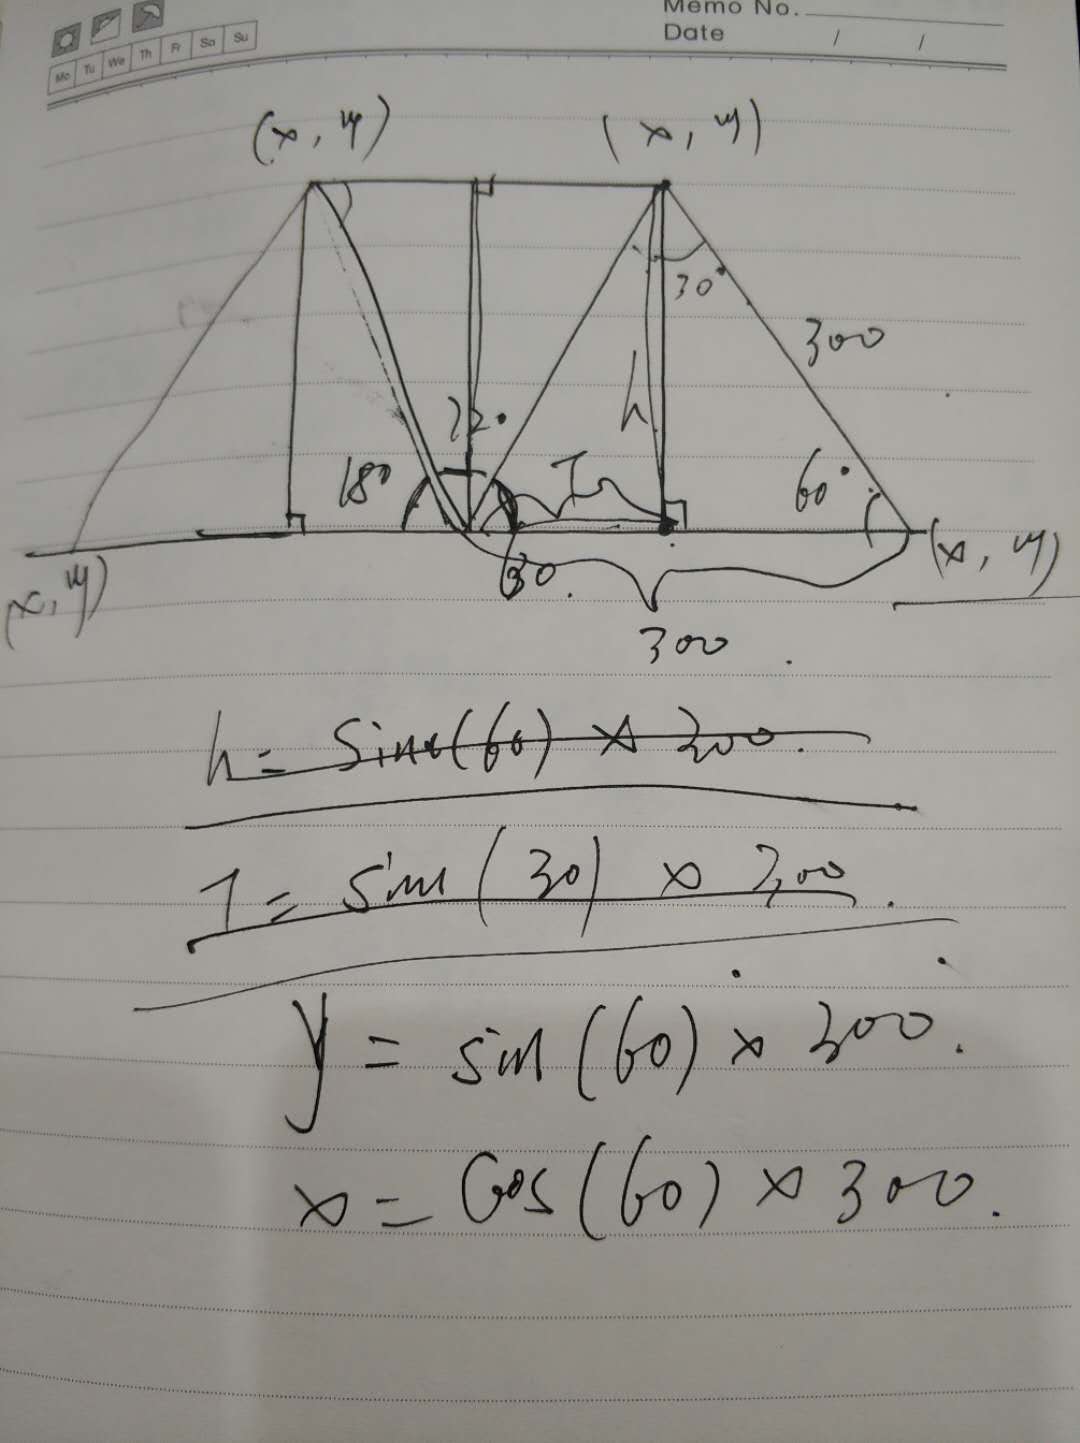 Memo No.
Date / /
Mo Tu We Th Fr Sa Su
(x, y) (x, y)
30°
300
h
120
180 I 60°
60
(x, y)
(x, y)
300
h = sin(60) × 300.
I = sin(30) × 300.
y = sin(60) × 300.
x = cos(60) × 300.